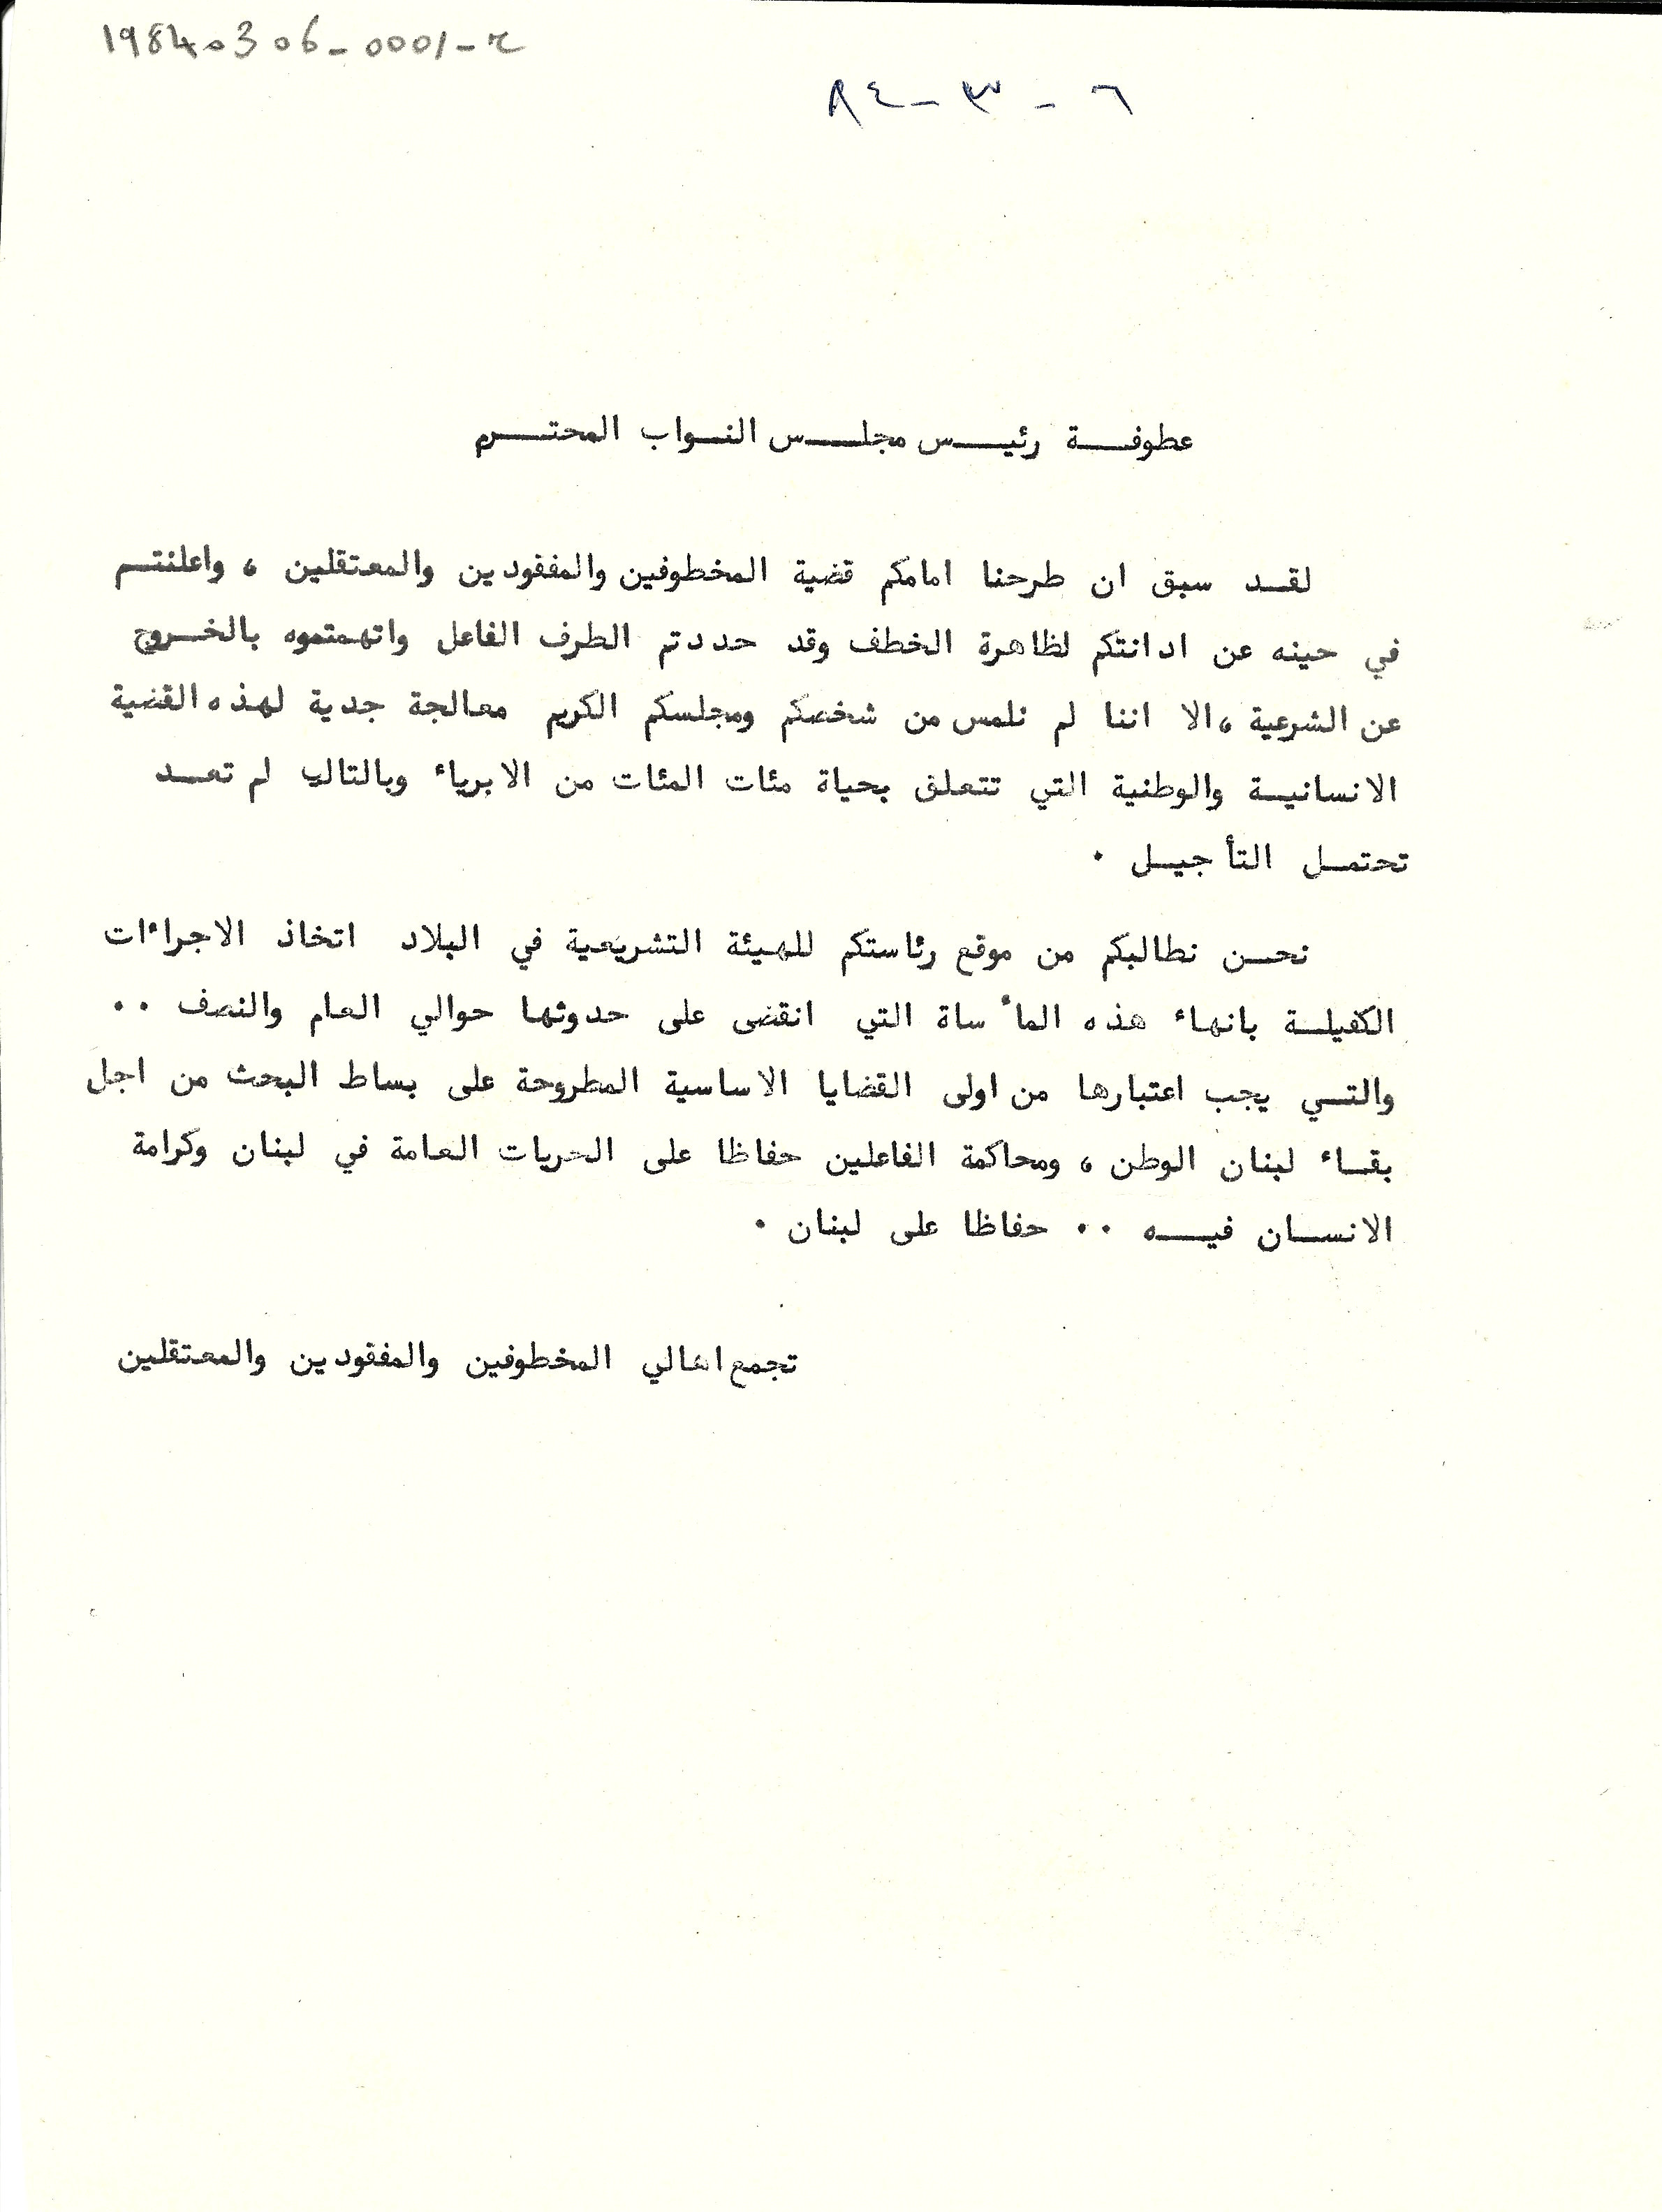 19840306-0001-2
٦ - ٣ - ٨٤
عطوفة رئيس مجلس النواب المحترم
لقد سبق ان طرحنا امامكم قضية المخطوفين والمفقودين والمعتقلين ، واعلنتم
في حينه عن ادانتكم لظاهرة الخطف وقد حددتم الطرف الفاعل واتهمتموه بالخروج
عن الشرعية ، الا اننا لم نلمس من شخصكم ومجلسكم الكريم معالجة جدية لهذه القضية
الانسانية والوطنية التي تتعلق بحياة مئات المئات من الابرياء وبالتالي لم تعد
تحتمل التأجيل .
نحن نطالبكم من موقع رئاستكم للهيئة التشريعية في البلاد اتخاذ الاجراءات
الكفيلة بانهاء هذه المأساة التي انقضى على حدوثها حوالي العام والنصف ..
والتي يجب اعتبارها من اولى القضايا الاساسية المطروحة على بساط البحث من اجل
بقاء لبنان الوطن ، ومحاكمة الفاعلين حفاظا على الحريات العامة في لبنان وكرامة
الانسان فيه .. حفاظا على لبنان .
تجمع اهالي المخطوفين والمفقودين والمعتقلين